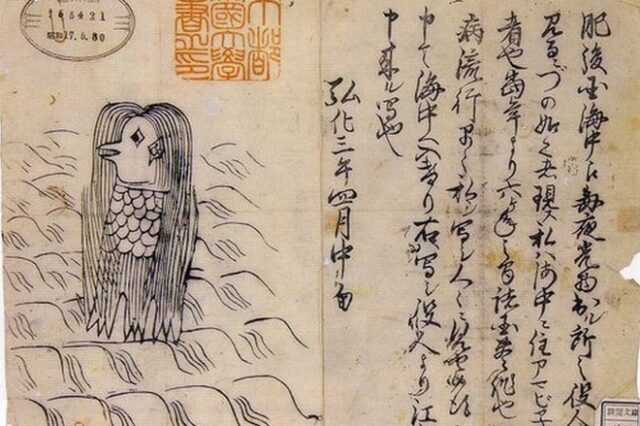 肥後国海中え毎夜光物出ル所之役人
見るニづの如く者現ス私ハ海中ニ住アマビヱ
者也当年より六ケ年之間諸国豊作也
病流行早々私シ写シ人々ニ見セ候得
申て海中へ入けり右写シ役人より江
申来ル写也
弘化三年四月中旬
昭和17.5.30
新聞文庫